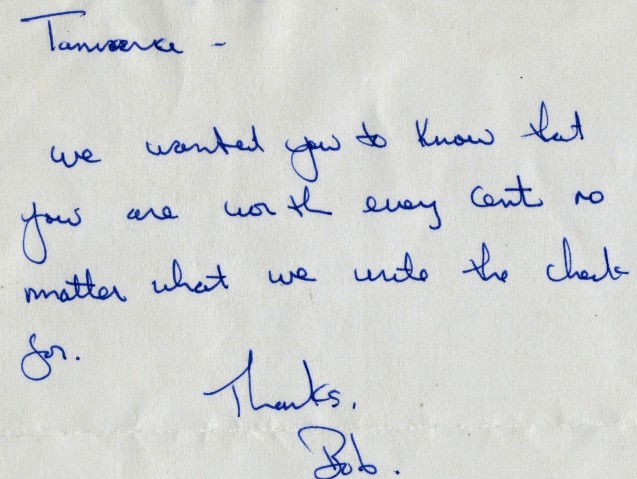 we wanted you to know that
you are worth every cent no
matter what we write the check
for.
Thanks.
Bob.